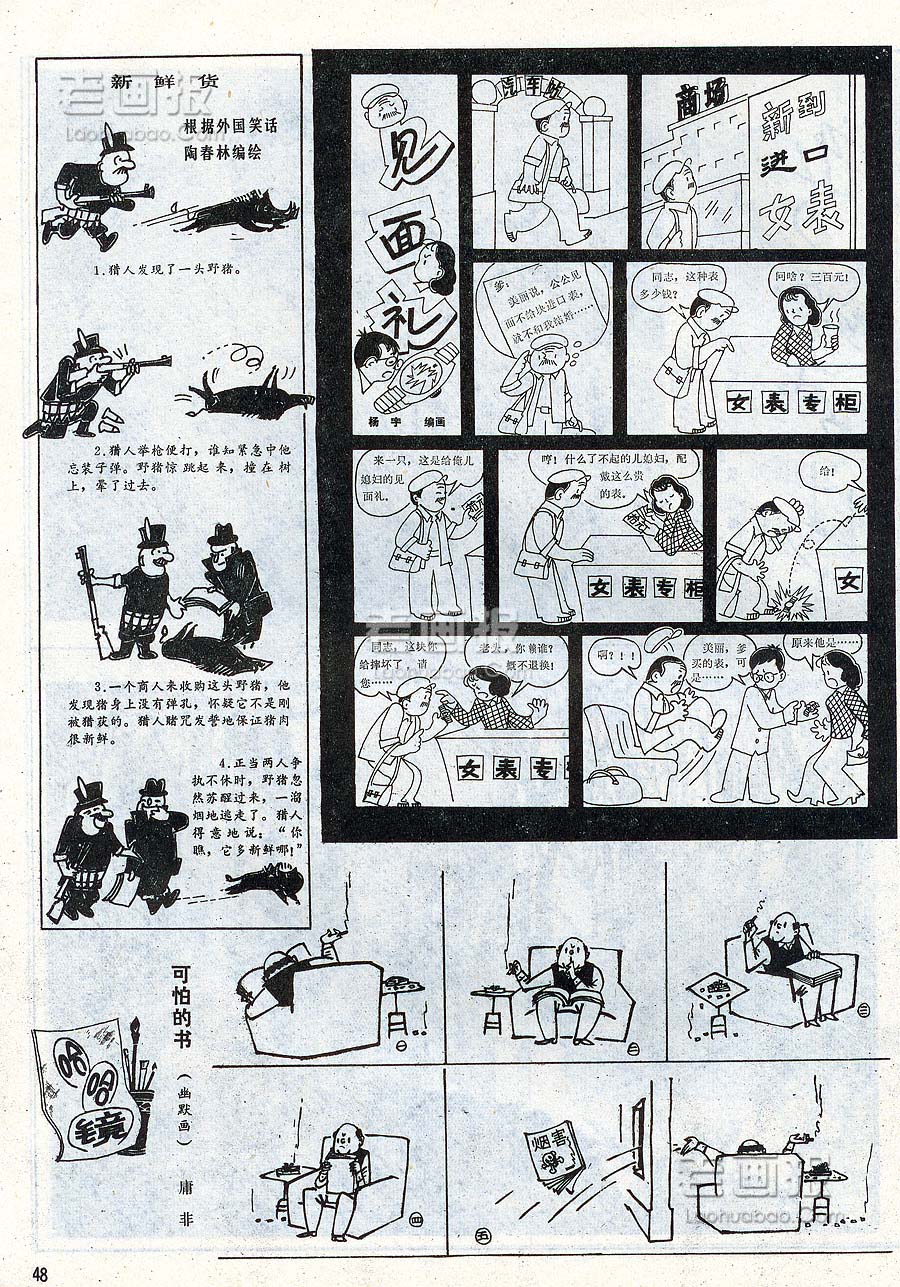 新鲜货
根据外国笑话
陶春林编绘
1.猎人发现了一头野猪。
2.猎人举枪便打，谁知紧急中他
忘装子弹。野猪惊跳起来，撞在树
上，晕了过去。
3.一个商人来收购这头野猪，他
发现猪身上没有弹孔，怀疑它不是刚
被猎获的。猎人赌咒发誓地保证猪肉
很新鲜。
4.正当两人争
执不休时，野猪忽
然苏醒过来，一溜
烟地逃走了。猎人
得意地说：“你
瞧，它多新鲜哪！”
见面礼
杨宇 编画
汽车站
商场
新到
进口
女表
爹：
美丽说，公公见
面不给块进口表，
就不和我结婚……
同志，这种表
多少钱？
问啥？三百元！
女表专柜
来一只，这是给俺儿
媳妇的见
面礼。
哼！什么了不起的儿媳妇，配
戴这么贵
的表。
女表专柜
给！
女
同志，这块你
给摔坏了，请
您……
老头，你赖谁？
概不退换！
女表专
啊？！！
美丽，爹
买的表，可
是……
原来他是……
可怕的书
（幽默画）
庸非
哈哈镜
一
二
三
四
五
烟害
老画报
Laohuabao.Com
老画报
老画报
Laohuabao.Com
48